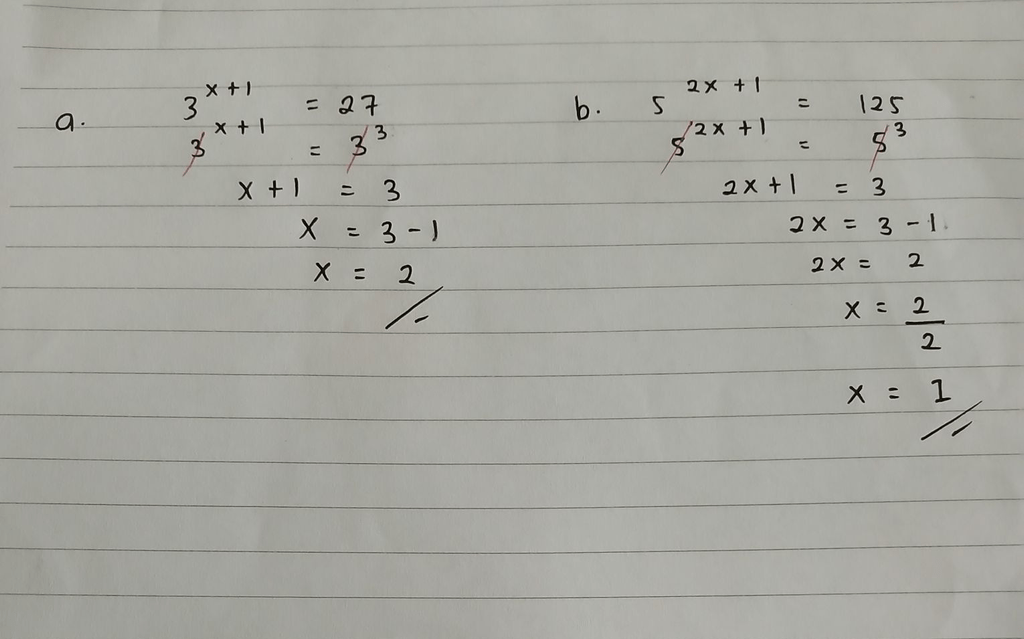 a. 3^{x+1} = 27
3^{x+1} = 3^3
x+1 = 3
x = 3-1
x = 2
b. 5^{2x+1} = 125
5^{2x+1} = 5^3
2x+1 = 3
2x = 3-1
2x = 2
x = 2/2
x = 1